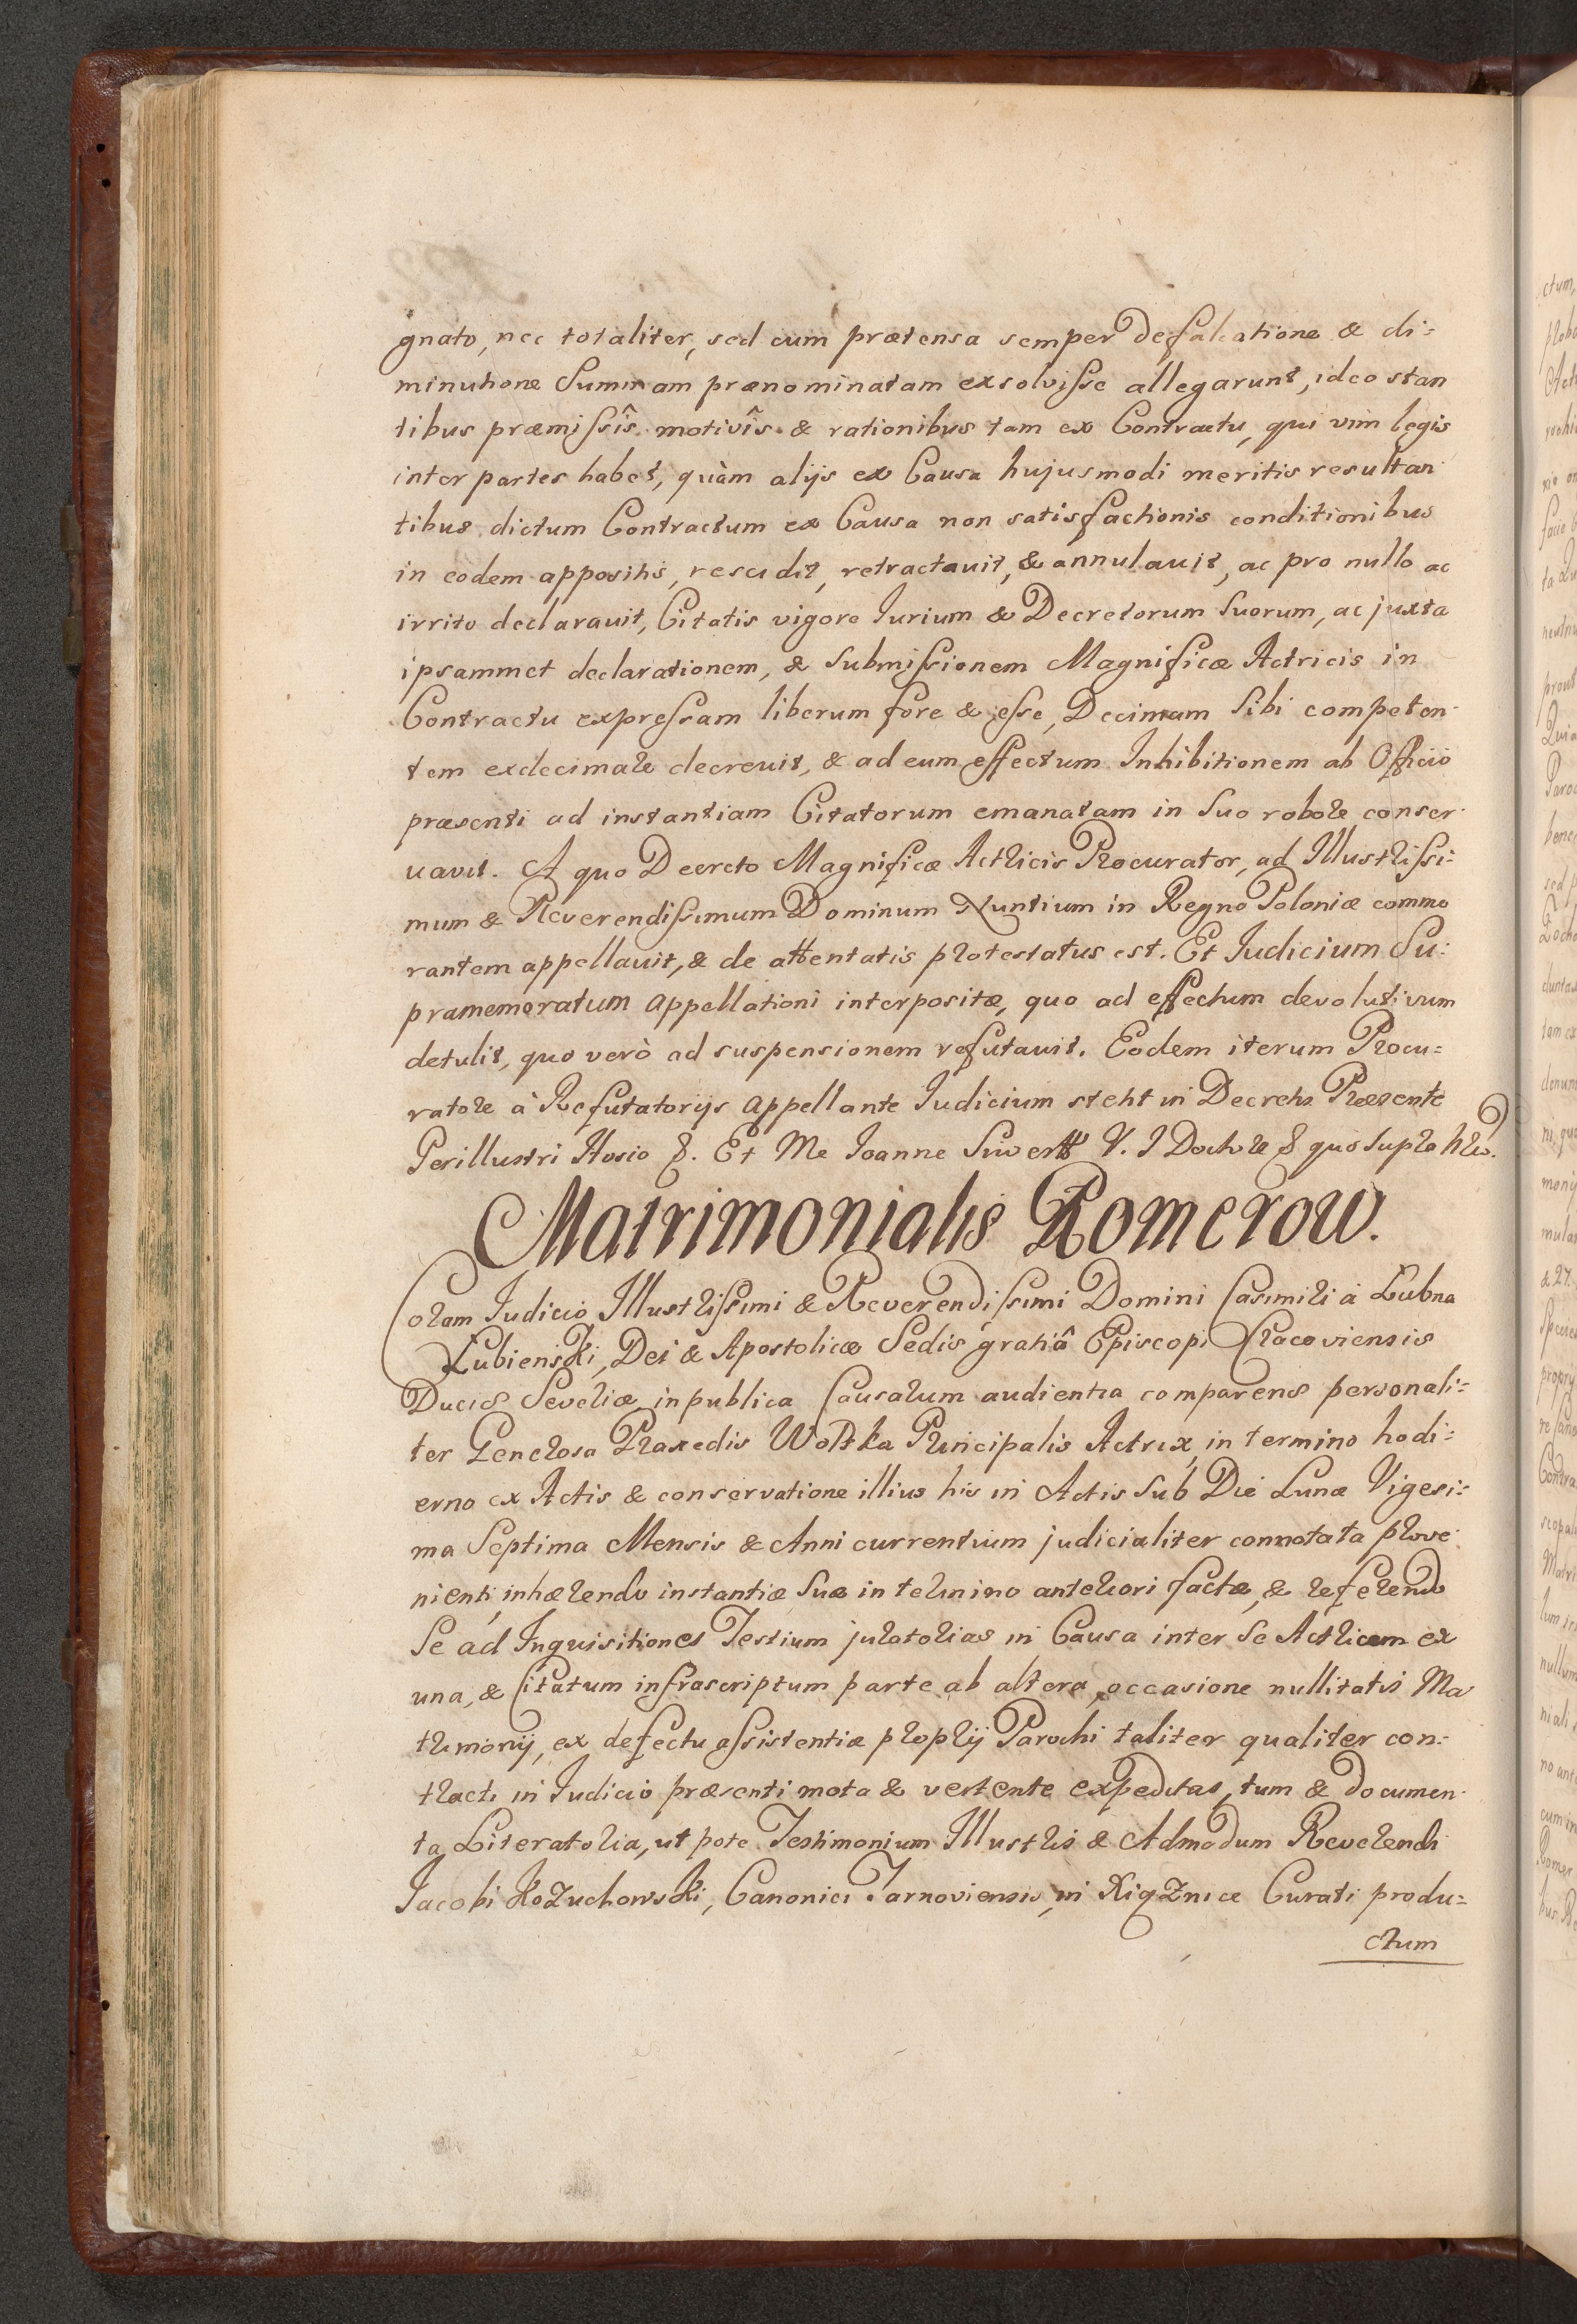 gnato, nec totaliter, sed cum prætensa semper Defalcatione & di=
minutione Summam prænominatam exsolvisse allegarunt, ideo stan
tibus præmissîs motivîs & rationibus tam ex Contractu, qui vim legis
inter partes habet, quàm alijs ex Causa hujusmodi meritis resultan
tibus dictum Contractum ex Causa non satisfactionis conditionibus
in eodem appositis, rescidit, retractauit, & annulauit, ac pro nullo ac
irrito declarauit, Citatis vigore Iurium & Decretorum Suorum, ac juxta
ipsammet declarationem, & Submissionem Magnificæ Actricis in
Contractu expressam liberum fore & esse, Decimam Sibi competen
tem exdecimare decreuit, & ad eum effectum Inhibitionem ab Officio
præsenti ad instantiam Citatorum emanatam in Suo robore conser
uavit. A quo Decreto Magnificæ Actricis Procurator, ad Illustrissi=
mum & Reverendissimum Dominum Nuntium in Regno Poloniæ commo
rantem appellauit, & de attentatis protestatus est. Et Iudicium Su=
pramemoratum appellationi interpositæ, quo ad effectum devolutivum
detulit, quo verò ad suspensionem refutauit. Eodem iterum Procu=
ratore à Refutatorijs appellante Iudicium stetit in Decreto Præsente
Perillustri Hosio &. Et Me Ioanne Siwertt V. I Doctore & quo supra
Matrimonialis Romerow.
Coram Iudicio Illustrissimi & Reverendissimi Domini Casimiri à Lubna
Łubieński, Dei & Apostolicæ Sedis gratiâ Episcopi Cracoviensis
Ducis Severiæ in publica Causarum audientia comparens personali=
ter Generosa Praxedis Wolska Principalis Actrix, in termino hodi=
erno ex Actis & conservatione illius his in Actis Sub Die Lunæ Vigesi=
ma Septima Mensis & Anni currentium judicialiter connotata prove
nienti, inhærendo instantiæ Suæ in termino anteriori factæ, & referendo
Se ad Inquisitiones Testium juratorias in Causa inter Se Actricem ex
una, & Citatum infrascriptum parte ab altera, occasione nullitatis Ma
trimonij, ex defectu assistentiæ proprij Parochi taliter qualiter con=
tracti in Iudicio præsenti mota & vertente expeditas, tum & documen
ta Literatoria, ut pote Testimonium Illustris & Admodum Reverendi
Iacobi KoZuchowski, Canonici Tarnoviensis, in XiąZnice Curati produ=
ctum